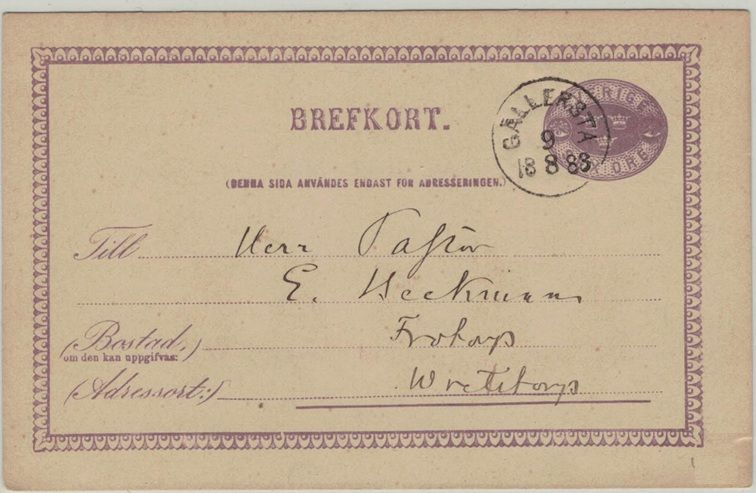 BREFKORT.
SVERIGE
ÖRE
GÄLLERSTA
9
18 8 85
(DENNA SIDA ANVÄNDES ENDAST FÖR ADRESSERINGEN.)
Till Herr Pastor
E. Heckmann
(Bostad,)
om den kan uppgifvas:
(Adressort:) Wretstorp